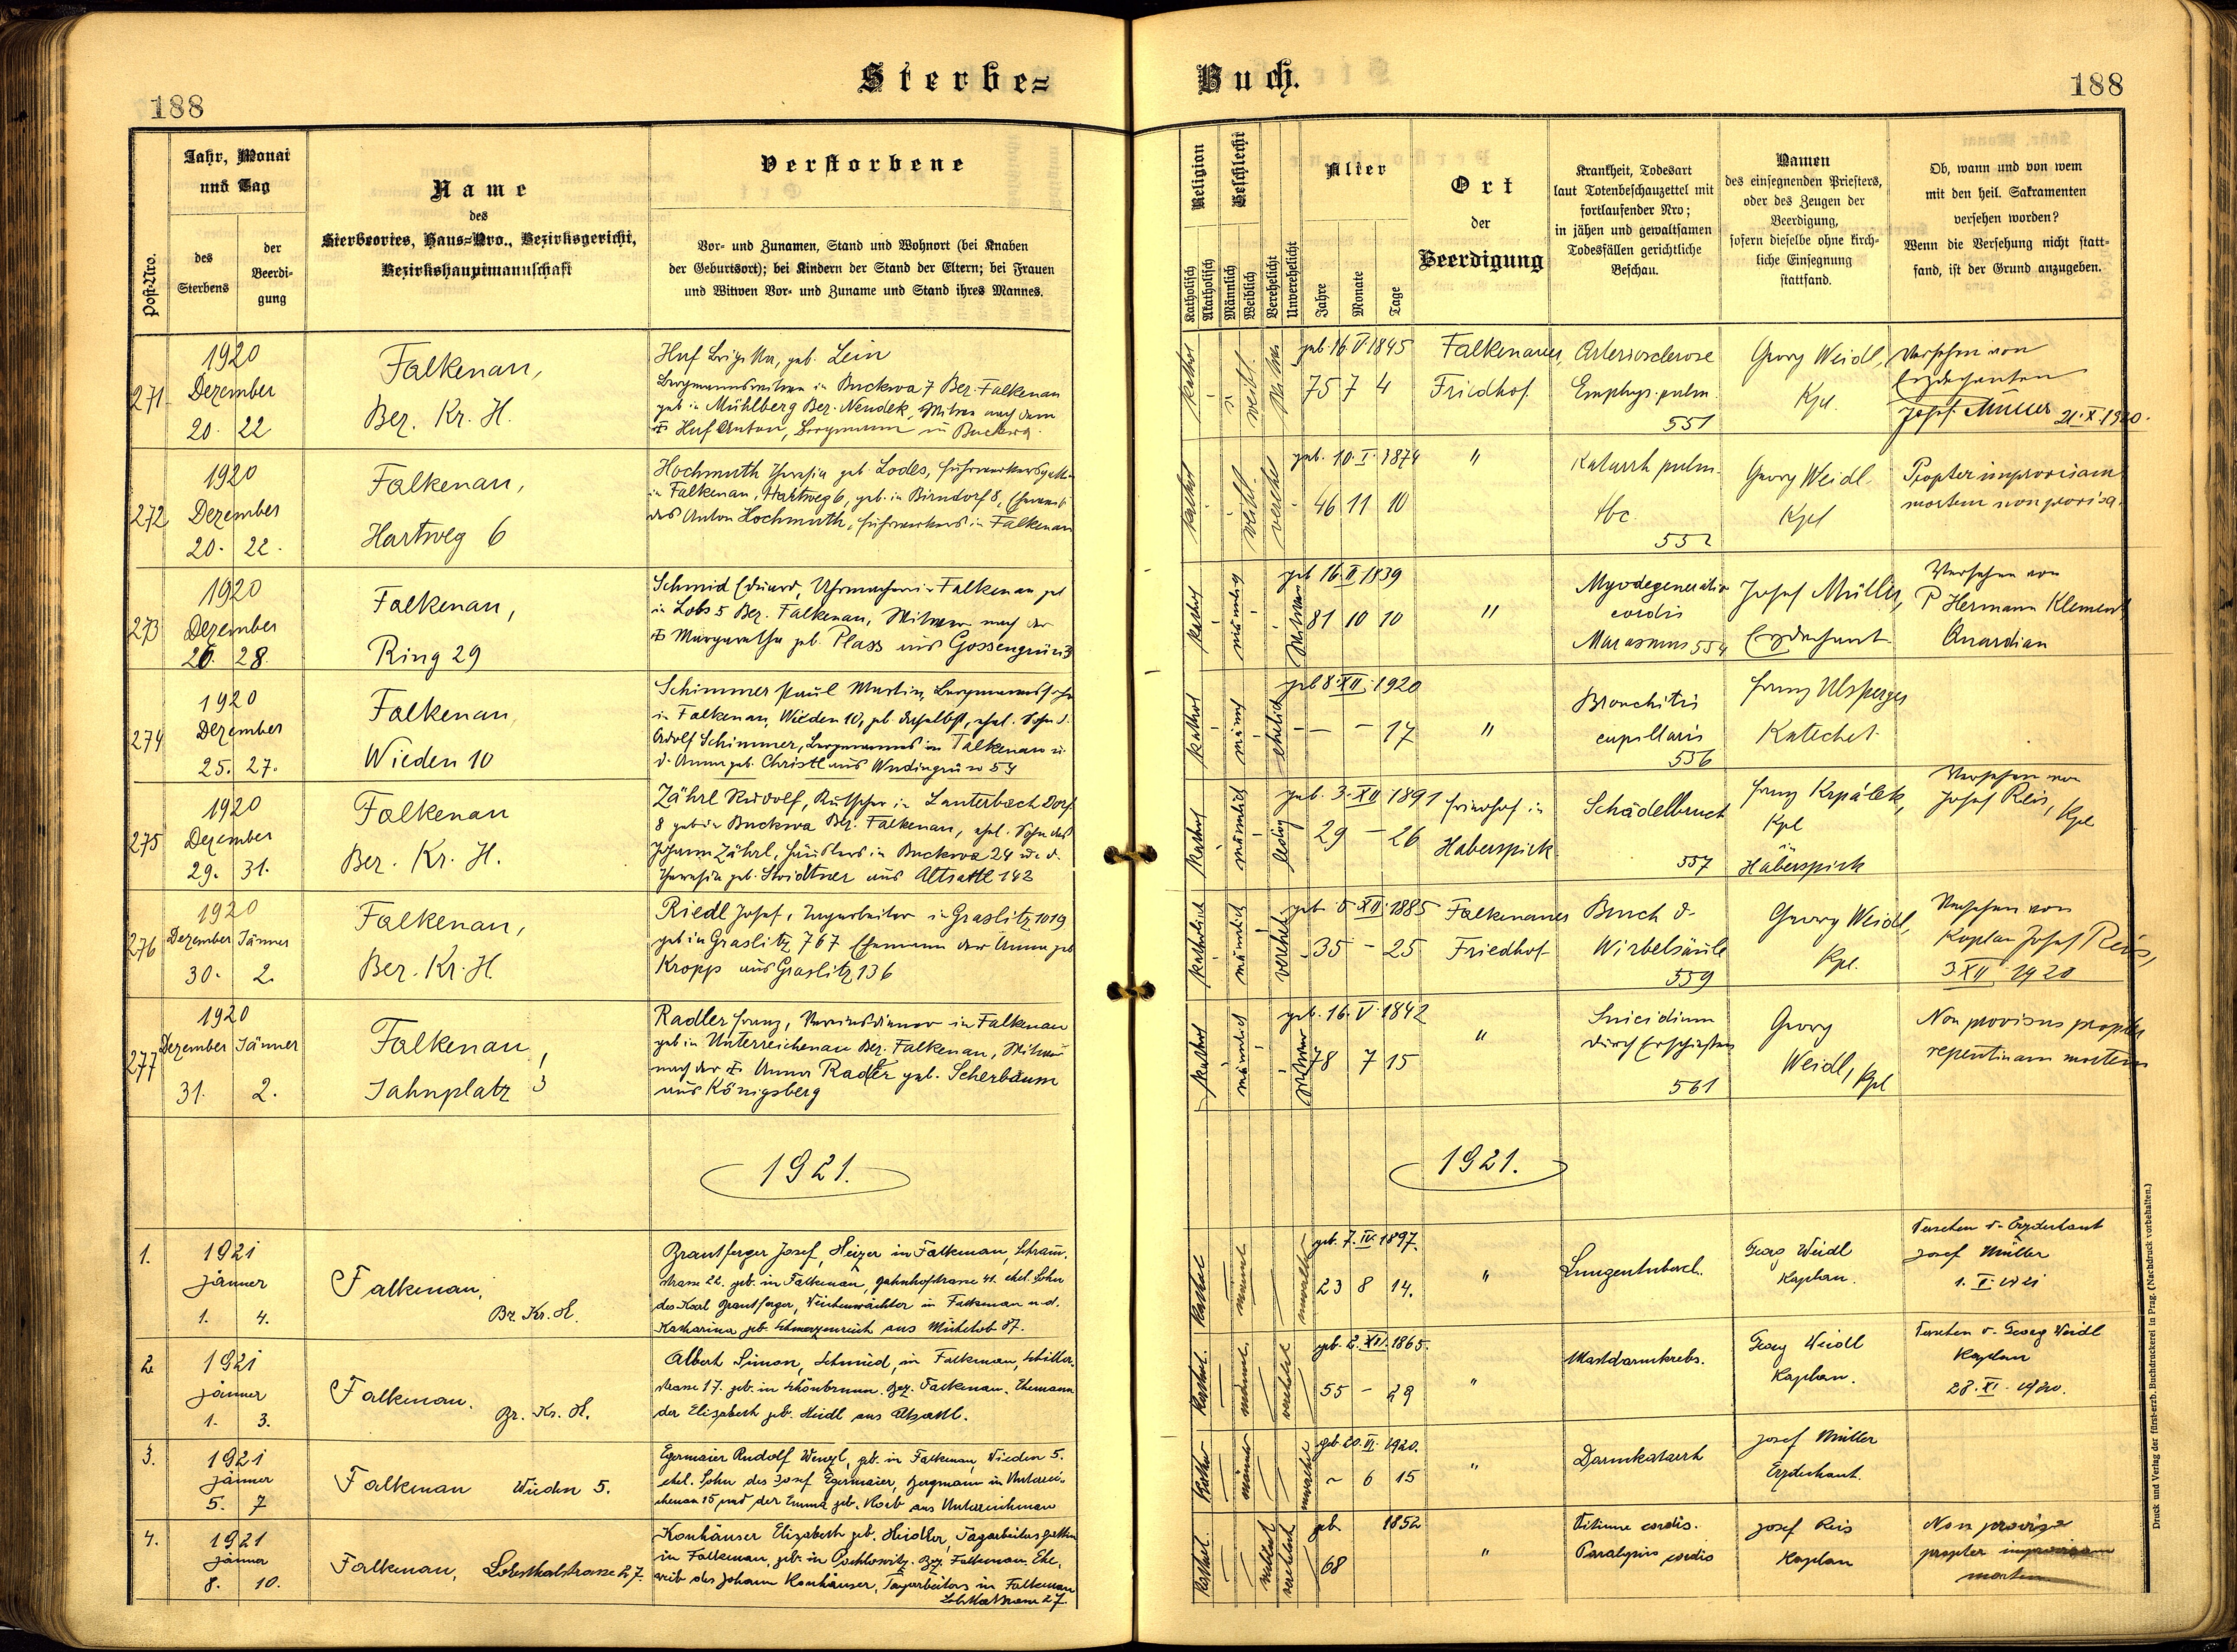 188
Sterbe=
Post-Nro.
Jahr, Monat
und Tag
des
Sterbens
der
Beerdi-
gung
Name
des
Sterbeortes, Haus=Nro., Bezirksgericht,
Bezirkshauptmannschaft
Verstorbene
Vor- und Zunamen, Stand und Wohnort (bei Knaben
der Geburtsort); bei Kindern der Stand der Eltern; bei Frauen
und Witwen Vor- und Zuname und Stand ihres Mannes.
271
1920
Dezember
20. 22
Falkenau,
Ber. Kr. H.
Huf Brigitta, geb. Lein
Bergmannswitwe in Buckwa 7 Ber. Falkenau
geb in Mühlberg Ber. Neudek, Witwe nach dem
Huf Anton, Bergmann in Buckwa.
272
1920
Dezember
20. 22.
Falkenau,
Hartweg 6
Hochmuth Theresia geb. Lodes, Fuhrwerkersgattin
in Falkenau, Hartweg 6, geb. in Birndorf 8, Eheweib
des Anton Hochmuth, Fuhrwerkers in Falkenau
273
1920
Dezember
26. 28.
Falkenau,
Ring 29
Schmid Eduard, Uhrmacher in Falkenau geb
in Lobs 5 Bez. Falkenau, Witwer nach der
Margaretha geb. Plass aus Gossengrün 3
274
1920
Dezember
25. 27.
Falkenau,
Wieden 10
Schimmer Paul Martin, Bergmannssohn
in Falkenau, Wieden 10, geb. daselbst, ehel. Sohn d.
Adolf Schimmer, Bergmannes in Falkenau u
d. Anna geb. Christl aus 54
275
1920
Dezember
29. 31.
Falkenau
Ber. Kr. H.
Zährl Rudolf, Kutscher in Lauterbach Dorf
8 geb in Buckwa Bez. Falkenau, ehel. Sohn des
Johann Zährl, Häuslers in Buckwa 24 u. d.
Theresia geb. aus Altsattl 142
276
1920
Dezember Jänner
30. 2.
Falkenau,
Ber. Kr. H
Riedl Josef, in Graslitz 1019
geb in Graslitz 767 Ehemann der Anna geb
Kropp aus Graslitz 136
277
1920
Dezember Jänner
31. 2.
Falkenau,
Jahnplatz 3
Radler Franz, Vereinsdiener in Falkenau
geb in Unterreichenau Bez. Falkenau, Witwer
nach der Anna Radler geb. Scherbaum
aus Königsberg
1921.
1.
1921
Jänner
1. 4.
Falkenau,
Bz. Kr. H.
Brantferger Josef, Heizer in Falkenau,
strasse 22. geb. in Falkenau, Bahnhofstrasse 41. ehel. Sohn
des Karl Brantferger, in Falkenau u. d.
Katharina geb. Schmerzenreich aus 87.
2
1921
Jänner
1. 3.
Falkenau.
Bz. Kr. H.
Albert Simon, Schmied, in Falkenau, Schiller-
strasse 17. geb. in Schönbrunn. Bez. Falkenau. Ehemann
der Elisabeth geb. Heidl aus Altsattl.
3.
1921
Jänner
5. 7
Falkenau Wieden 5.
Egermaier Rudolf Wenzl, geb. in Falkenau, Wieden 5.
ehel. Sohn des Josef Egermaier, Bergmann in Unterrei-
chenau 15 und der Emma geb. aus Unterreichenau
4.
1921
Jänner
8. 10.
Falkenau, Lobsthalstrasse 27.
Konhäuser Elisabeth geb. Heidler, Tagarbeitersgattin
in Falkenau, geb. in Pochlowitz. Bez. Falkenau. Ehe-
weib des Johann Konhäuser, Tagarbeiters in Falkenau
27.
Buch.
188
Religion
Katholisch
Akatholisch
Geschlecht
Männlich
Weiblich
Verehelicht
Unverehelicht
Alter
Jahre
Monate
Tage
Ort
der
Beerdigung
Krankheit, Todesart
laut Totenbeschauzettel mit
fortlaufender Nro;
in jähen und gewaltsamen
Todesfällen gerichtliche
Beschau.
Namen
des einsegnenden Priesters,
oder des Zeugen der
Beerdigung,
sofern dieselbe ohne kirch-
liche Einsegnung
stattfand.
Ob, wann und von wem
mit den heil. Sakramenten
versehen worden?
Wenn die Versehung nicht statt-
fand, ist der Grund anzugeben.
kathol
weibl.
geb. 16 V 1845
75 7 4
Falkenauer
Friedhof.
Arteriosclerose
Emphys. pulm.
551
Georg Weidl,
Kpl.
Versehen von
Erzdechanten
Josef Müller 21. X. 1920.
kathol
weibl.
verehel
geb. 10. I. 1874
46 11 10
"
Katarrh pulm.
tbc.
552
Georg Weidl.
Kpl
Propter improvisam
mortem non provisa.
kathol
männlich
Witwer
geb 16. II 1839
81 10 10
"
Myodegeneratio
cordis
Marasmus 554
Josef Müller,
Erzdechant
Versehen von
P Hermann Klement
Quardian
kathol
männl
ehelich
geb 8. XII. 1920
- - 17
"
Bronchitis
capillaris
556
Franz Ulsperger
Katechet.
kathol
männlich
ledig
geb. 3. XII 1891
29 - 26
Friedhof in
Haberspirk
Schädelbruch
557
Franz Krpálek,
Kpl
in
Haberspirk
Versehen von
Josef Reis, Kpl
katholisch
männlich
verehel.
geb 5. XII. 1885
35 - 25
Falkenauer
Friedhof
Bruch d.
Wirbelsäule
559
Georg Weidl,
Kpl.
Versehen von
Kaplan Josef Reis,
3 XII 1920
kathol
männlich
Witwer
geb. 16. V 1842
78 7 15
"
Suicidium
durch Erschießen
561
Georg
Weidl, Kpl
Non provisus propter
repentinam mortem
1921.
kathol
männl.
geb. 7. IV. 1897.
23 8 14.
"
Lungentuberk.
Georg Weidl
Kaplan.
Versehen v. Erzdechant
Josef Müller
1. I. 1921
kathol.
männl.
verehel
geb. 2. XII. 1865.
55 - 29
"
Mastdarmkrebs.
Georg Weidl
Kaplan.
Versehen v. Georg Weidl
Kaplan
28. XI. 1920.
kathol
männl
geb. 20. VI. 1920.
~ 6 15
"
Darmkatarrh
Josef Müller
Erzdechant.
kathol.
geb. 1852
68
"
Vitium cordis.
Paralysis cordis
Josef Reis
Kaplan
Non provisa
propter improvisam
mortem
Druck und Verlag der fürst-erzb. Buchdruckerei in Prag. (Nachdruck vorbehalten.)